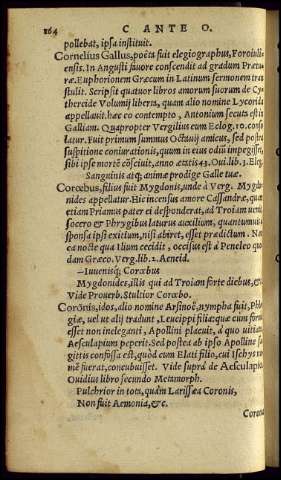 164 C ANTE O.
pollebat, ipsa instituit.
Cornelius Gallus, poëta fuit elegiographus, Foroiuli
ensis. In Augusti fauore conscendit ad gradum Prætu
ræ. Euphorionem Græcum in Latinum sermonem tran
stulit. Scripsit quatuor libros amorum suorum de Cy
thereide Volumij liberta, quam alio nomine Lycorida
appellauit. hæc eo contempto, Antonium secuta est in
Galliam. Quapropter Vergilius eum Eclog. 10. conso
latur. Fuit primum summus Octauij amicus, sed postea
suspitione coniurationis, quum in eius odii impegisset,
sibi ipse mortē cōsciuit, anno ætatis 43. Oui. lib. 3. Eleg.
Sanguinis atq; animæ prodige Galle tuæ.
Corœbus, filius fuit Mygdonis, unde à Verg. Mygdo
nides appellatur. Hic incensus amore Cassandræ, quæ
etiam Priamus pater ei desponderat, ad Troiam uenit
socero & Phrygibus laturus auxilium, quantumuis
sponsa ipsi exitium, nisi abiret, esset prædictum. Na
ea nocte qua Ilium cecidit, occisus est à Peneleo quo
dam Græco. Verg. lib. 2. Aeneid.
—Iuuenisq; Corœbus
Mygdonides, illis qui ad Troiam forte diebus, &c.
Vide Prouerb. Stultior Corœbo.
Corōnis, idos, alio nomine Arsinoë, nympha fuit, Phle
giæ, uel ut alij tradunt, Leucippi filia: quæ cùm forma
esset non ineleganti, Apollini placuit, à quo uitiata
Aesculapium peperit. Sed postea ab ipso Apolline sa
gittis confossa est, quòd cum Elati filio, cui Ischys no
mē fuerat, concubuisset. Vide suprà de Aesculapio
Ouidius libro secundo Metamorph.
Pulchrior in totis, quàm Larissæa Coronis,
Non fuit Aemonia, &c.
Corona